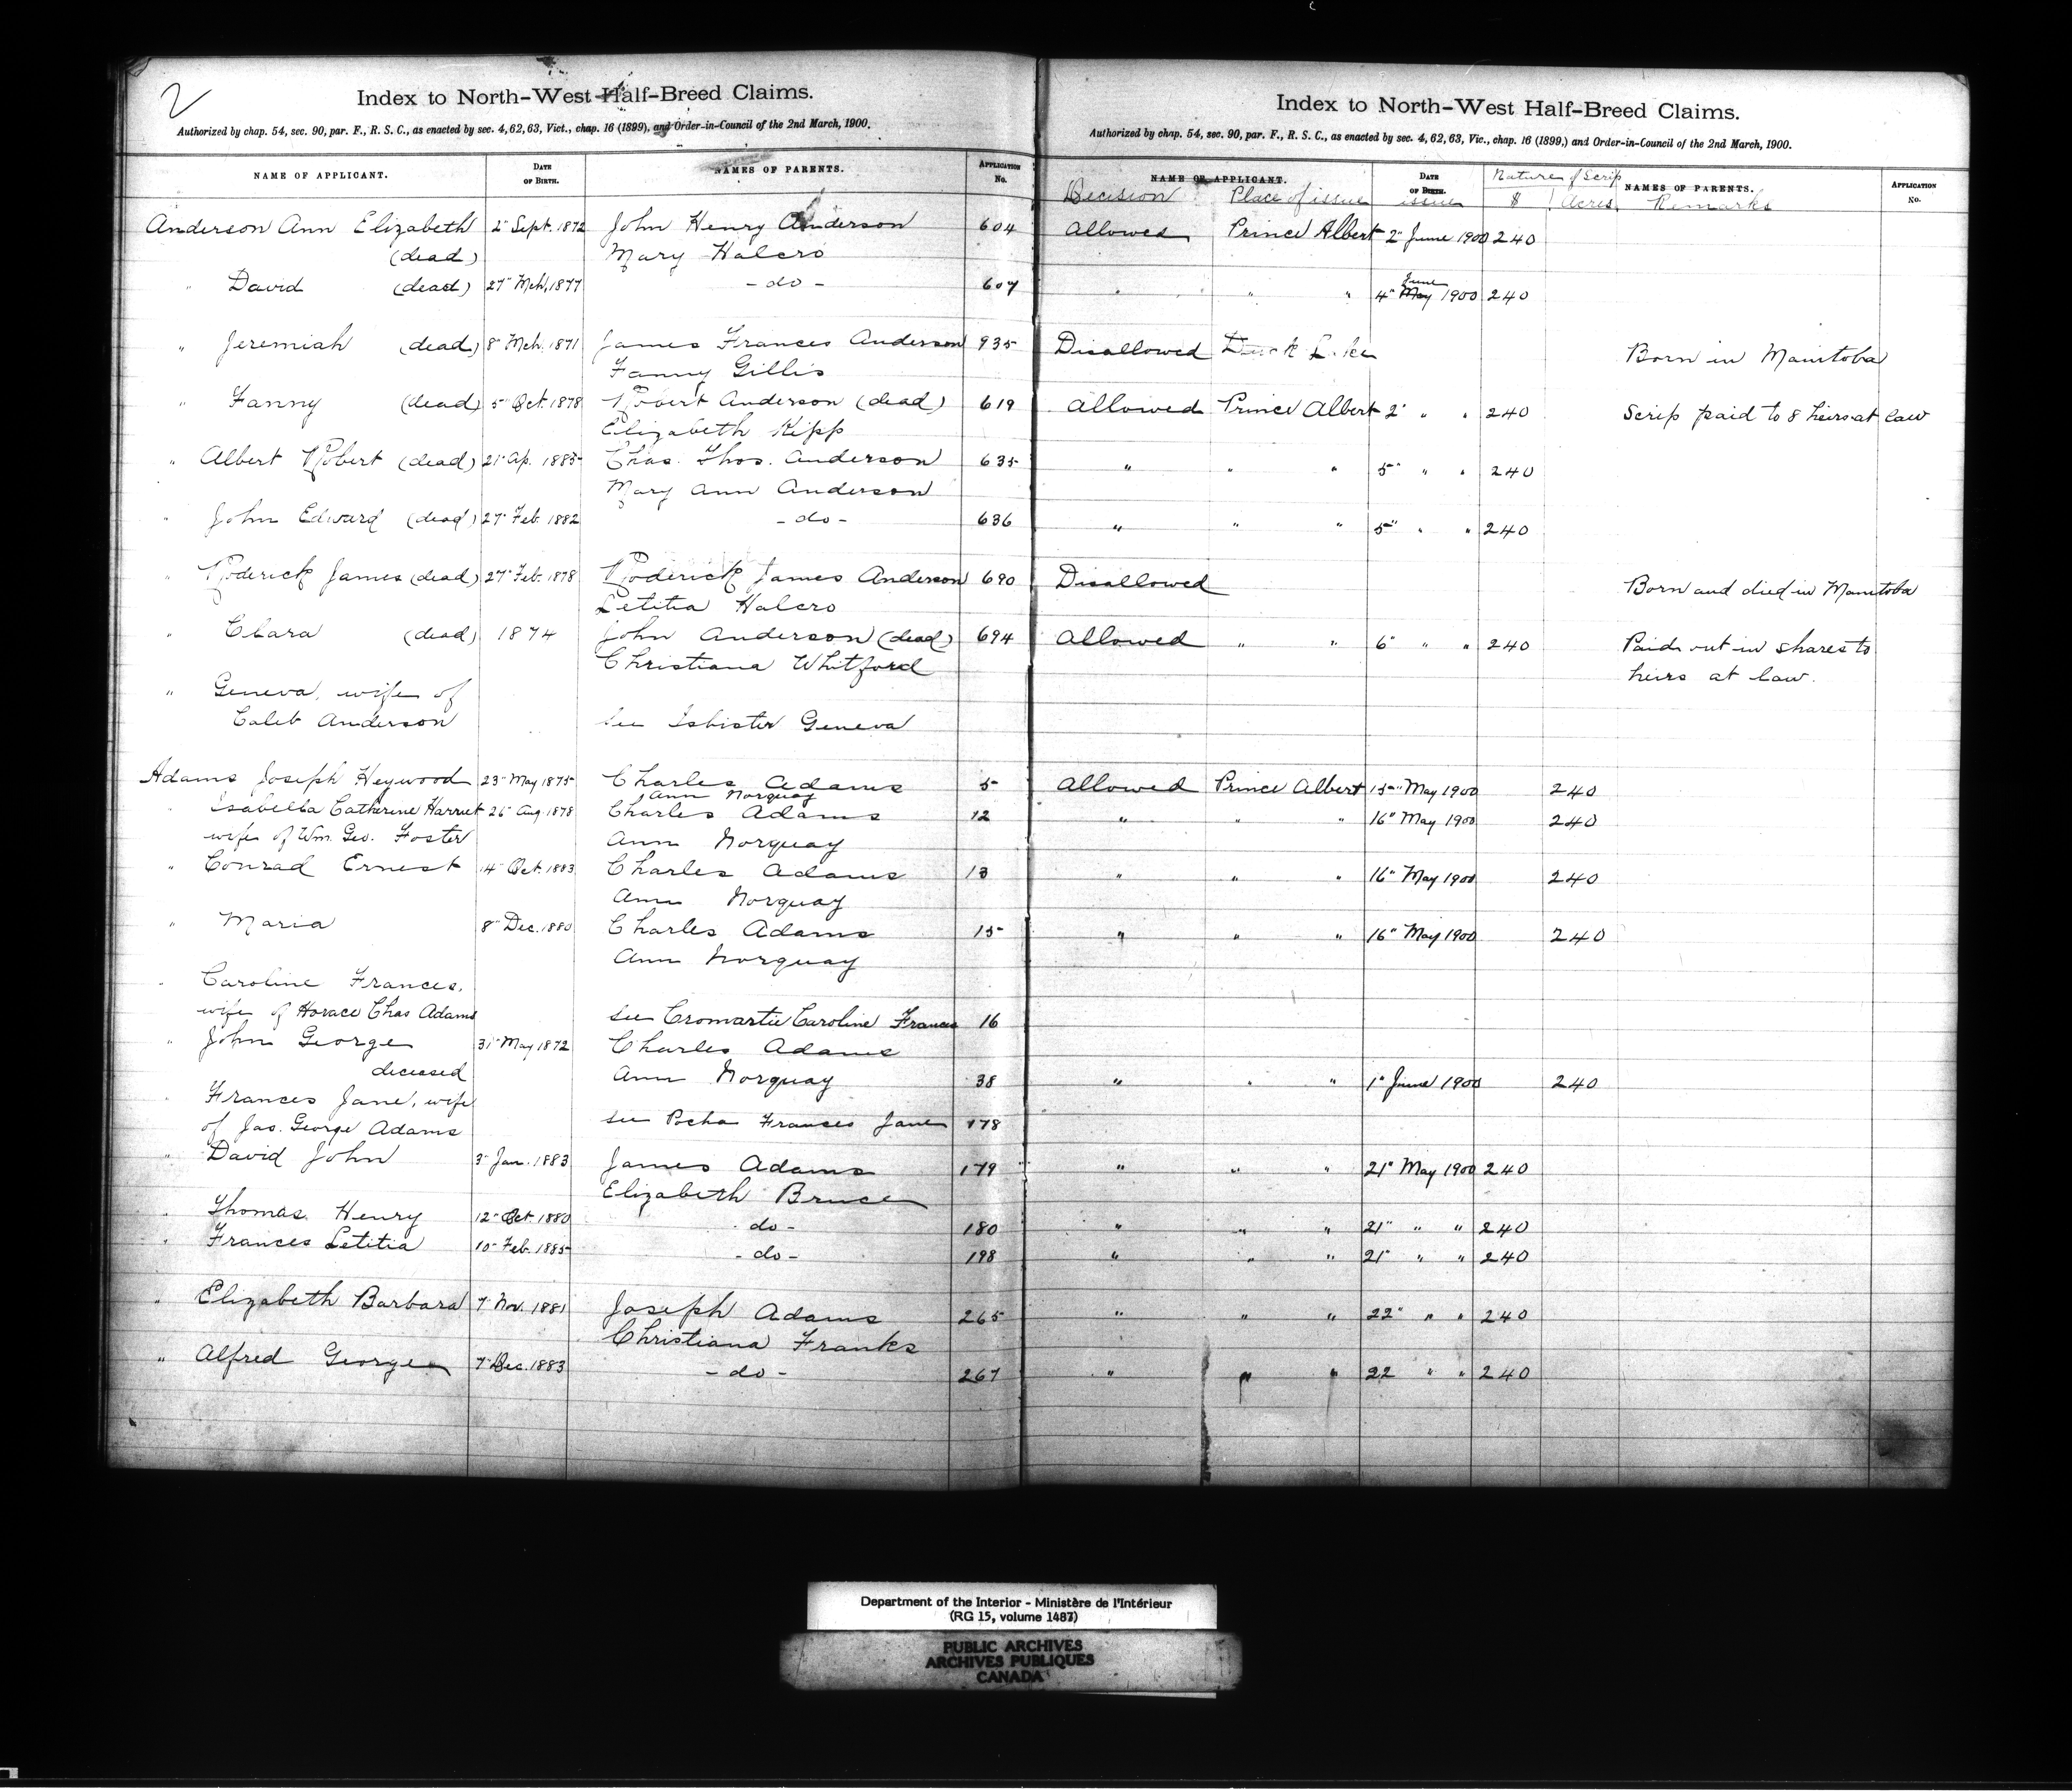 2
Index to North-West Half-Breed Claims.
Authorized by chap. 54, sec. 90, par. F., R. S. C., as enacted by sec. 4, 62, 63, Vict., chap. 16 (1899), and Order-in-Council of the 2nd March, 1900.
NAME OF APPLICANT. DATE OF BIRTH. NAMES OF PARENTS. APPLICATION No.
Anderson Ann Elizabeth 2" Sept. 1872 John Henry Anderson 604
(dead) Mary Halcro
" David (dead) 27" Mch, 1877 - do - 607
" Jeremiah (dead) 8" Mch. 1871 James Frances Anderson 935
Fanny Gillis
" Fanny (dead) 5" Oct. 1878 Robert Anderson (dead) 619
Elizabeth Kipp
" Albert Robert (dead) 21" Ap. 1885 Chas. Thos. Anderson 635
Mary Ann Anderson
" John Edward (dead) 27" Feb. 1882 - do - 636
" Roderick James (dead) 27" Feb. 1878 Roderick James Anderson 690
Letitia Halcro
" Clara (dead) 1874 John Anderson (dead) 694
Christiana Whitford
" Geneva, wife of
Caleb Anderson see Isbister Geneva
Adams Joseph Heywood 23" May 1875 Charles Adams 5
Ann Norquay
" Isabella Catherine Harriet 26" Aug. 1878 Charles Adams 12
wife of Wm. Geo. Foster Ann Norquay
" Conrad Ernest 14" Oct. 1883 Charles Adams 13
Ann Norquay
" Maria 8" Dec. 1880 Charles Adams 15
Ann Norquay
" Caroline Frances,
wife of Horace Chas Adams see Cromartie Caroline Frances 16
" John George 31" May 1872 Charles Adams
deceased Ann Norquay 38
" Frances Jane, wife
of Jas. George Adams see Pocha Frances Jane 178
" David John 3" Jan. 1883 James Adams 179
Elizabeth Bruce
" Thomas Henry 12" Oct. 1880 - do - 180
" Frances Letitia 10" Feb. 1885 - do - 198
" Elizabeth Barbara 7" Nov. 1881 Joseph Adams 265
Christiana Franks
" Alfred George 7" Dec. 1883 - do - 267
Index to North-West Half-Breed Claims.
Authorized by chap. 54, sec. 90, par. F., R. S. C., as enacted by sec. 4, 62, 63, Vic., chap. 16 (1899,) and Order-in-Council of the 2nd March, 1900.
NAME OF APPLICANT. DATE OF BIRTH. Nature of Scrip NAMES OF PARENTS. APPLICATION No.
Decision Place of issue issue $ Acres Remarks
Allowed Prince Albert 2" June 1900 240
" " " 4" May June 1900 240
Disallowed Duck Lake Born in Manitoba
Allowed Prince Albert 2" " " 240 Scrip paid to 8 heirs at law
" " " 5" " " 240
" " " 5" " " 240
Disallowed Born and died in Manitoba
Allowed " " 6" " " 240 Paid out in shares to
heirs at law.
Allowed Prince Albert 15" May 1900 240
" " " 16" May 1900 240
" " " 16" May 1900 240
" " " 16" May 1900 240
" " " 1" June 1900 240
" " " 21" May 1900 240
" " " 21" " " 240
" " " 21" " " 240
" " " 22" " " 240
" " " 22 " " 240
Department of the Interior - Ministère de l'Intérieur
(RG 15, volume 1487)
PUBLIC ARCHIVES
ARCHIVES PUBLIQUES
CANADA